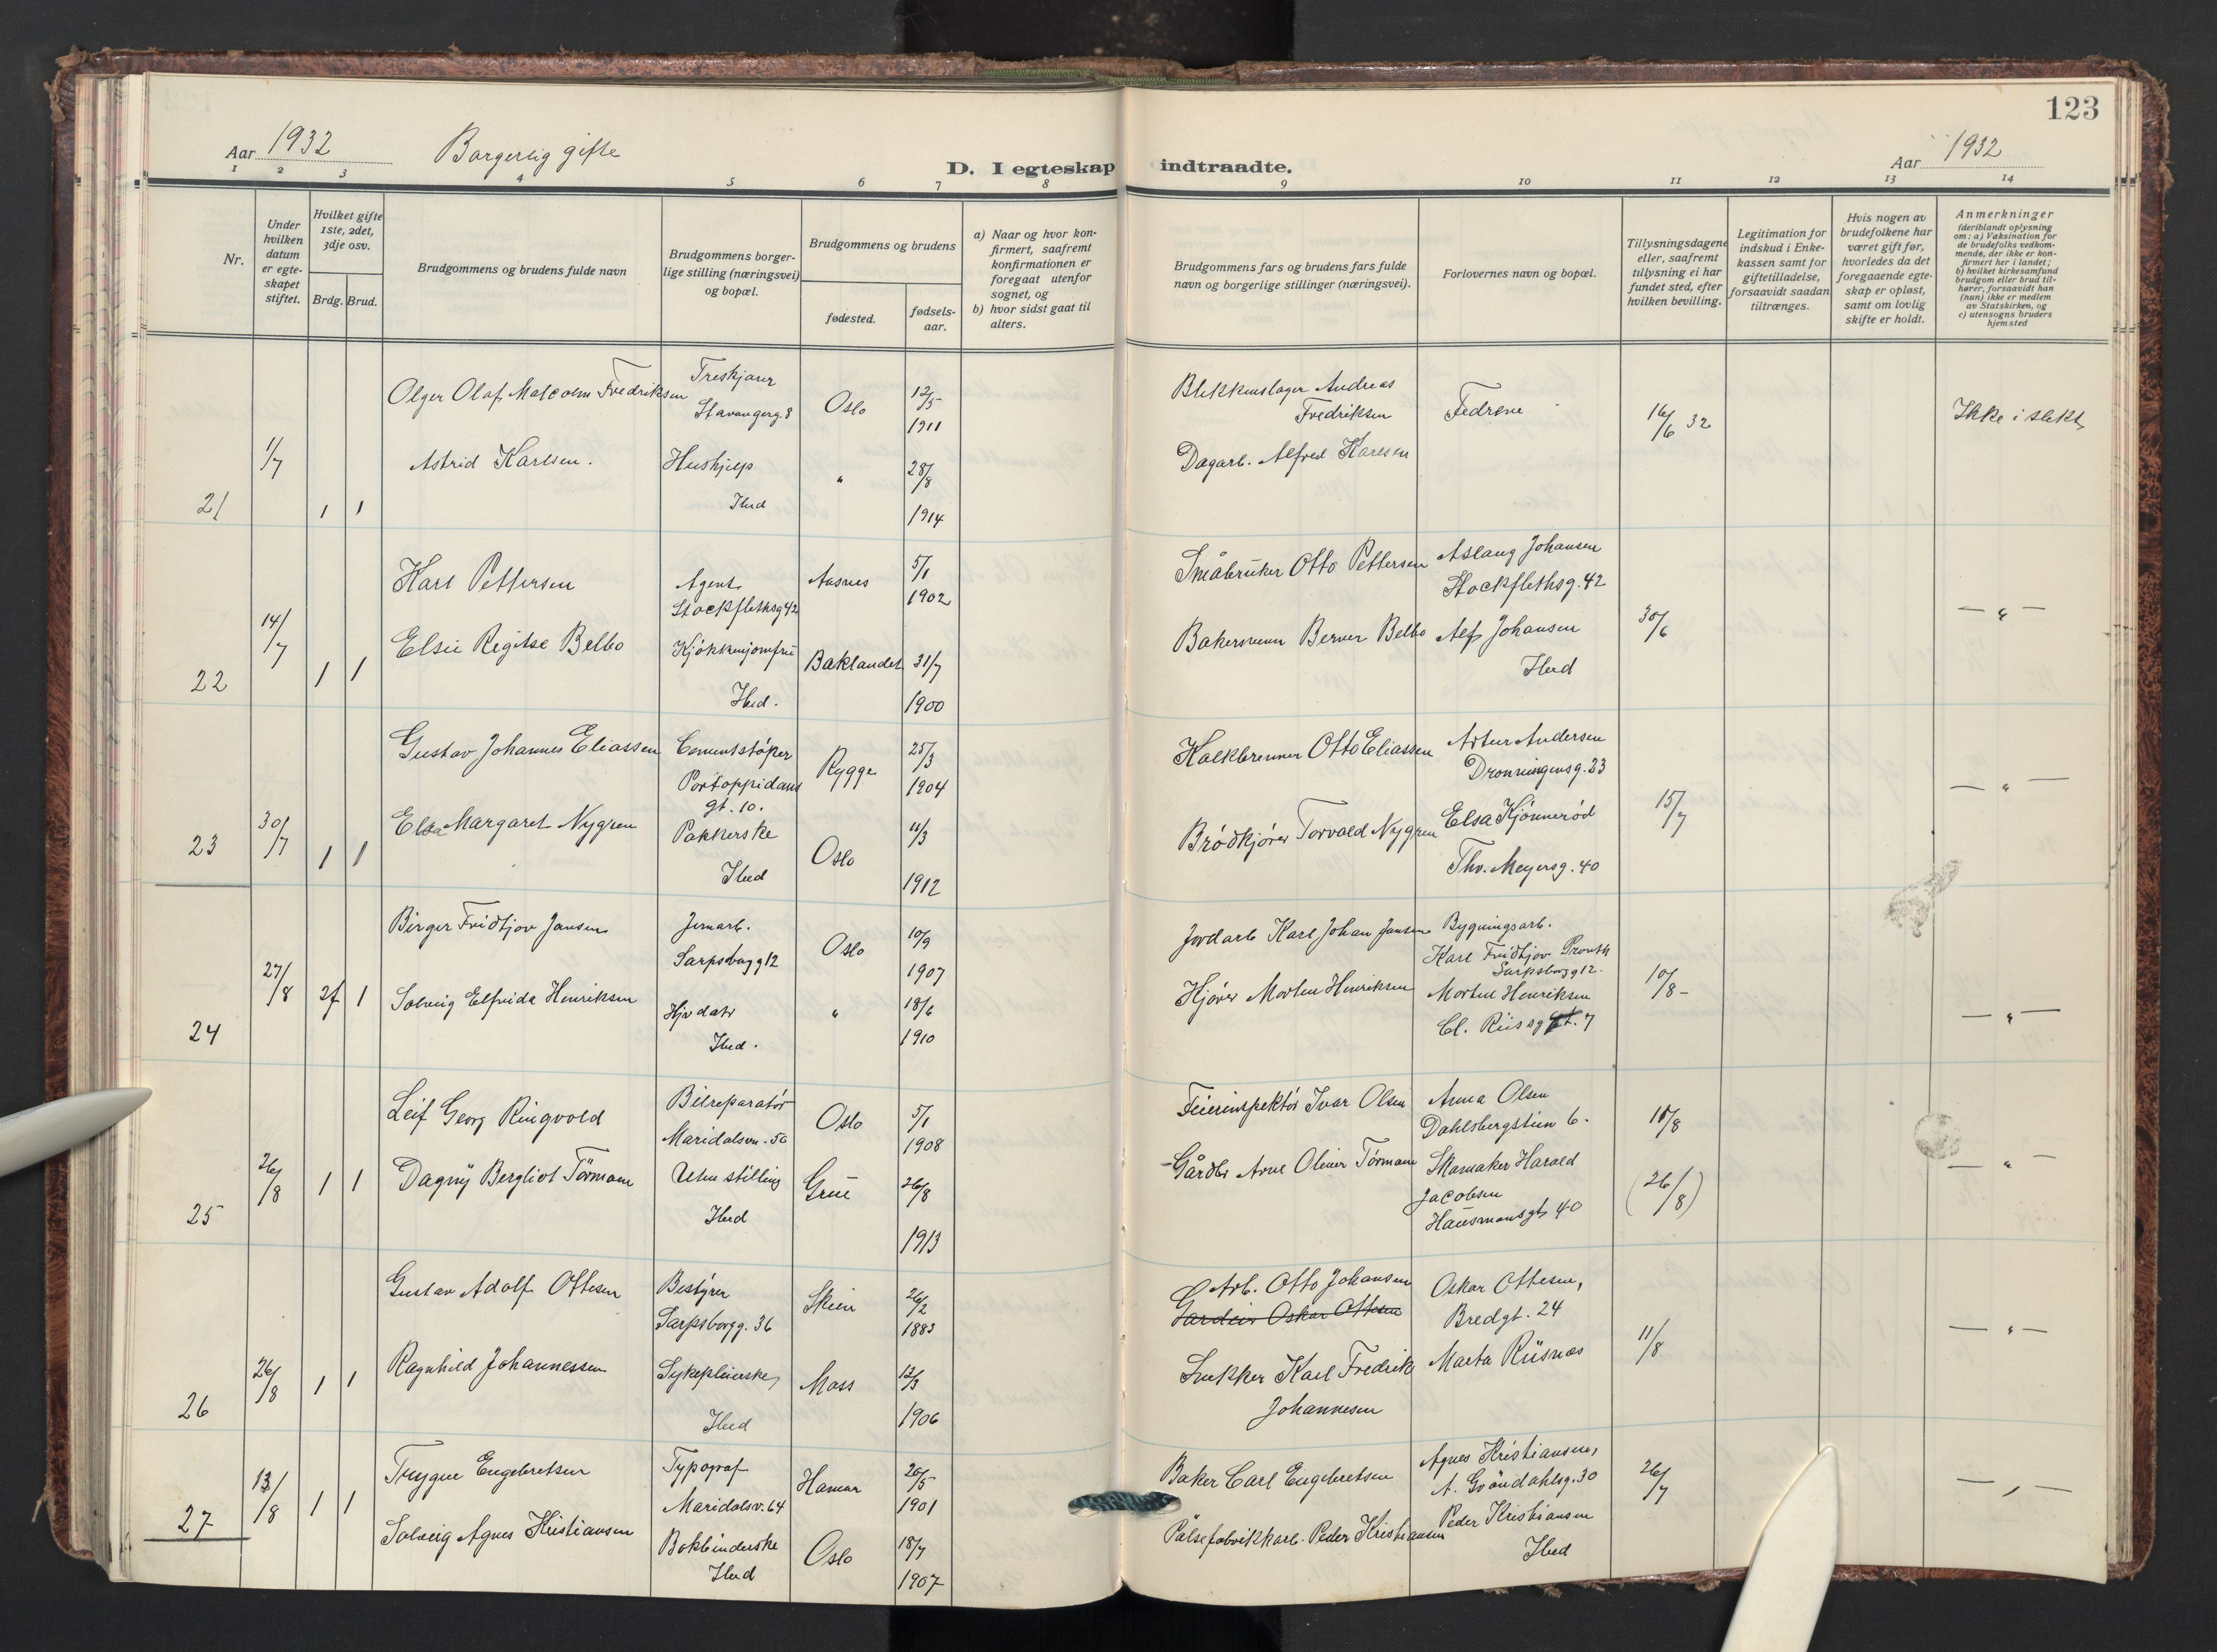 123
Aar 1932
Borgerlig gifte
D. I egteskap indtraadte.
Aar 1932
1 2 3 4 5 6 7 8 9 10 11 12 13 14
Nr.
Under
hvilken
datum
er egte-
skapet
stiftet.
Hvilket gifte
1ste, 2det,
3dje osv.
Brdg. Brud.
Brudgommens og brudens fulde navn
Brudgommens borger-
lige stilling (næringsvei)
og bopæl.
Brudgommens og brudens
fødested.
fødsels-
aar.
a) Naar og hvor kon-
firmert, saafremt
konfirmationen er
foregaat utenfor
sognet, og
b) hvor sidst gaat til
alters.
Brudgommens fars og brudens fars fulde
navn og borgerlige stillinger (næringsvei).
Forlovernes navn og bopæl.
Tillysningsdagene
eller, saafremt
tillysning ei har
fundet sted, efter
hvilken bevilling.
Legitimation for
indskud i Enke-
kassen samt for
giftetilladelse,
forsaavidt saadan
tiltrænges.
Hvis nogen av
brudefolkene har
været gift før,
hvorledes da det
foregaaende egte-
skap er opløst,
samt om lovlig
skifte er holdt.
Anmerkninger
(deriblandt oplysning
om: a) Vaksination for
de brudefolks vedkom-
mende, der ikke er kon-
firmert her i landet;
b) hvilket kirkesamfund
brudgom eller brud til-
hører, forsaavidt han
(hun) ikke er medlem
av Statskirken, og
c) utensogns bruders
hjemsted
21
1/7
1 1
Olger Olaf Malcolm Fredriksen
Treskjærer
Stavangerg. 8
Oslo
12/5
1911
Blikkenslager Andreas
Fredriksen
Fedrene
16/6 32
Ikke i slekt
Astrid Karlsen.
Hushjelp
Ibid
"
28/8
1914
Dagarb. Alfred Karlsen
22
14/7
1 1
Karl Pettersen
Agent
Stockflethsg 42
Aasnes
5/1
1902
Småbruker Otto Pettersen
Aslaug Johansen
Stockflethsg. 42
30/6
— " —
Elsie Regitse Belbo
Kjøkkenjomfru
Ibid.
Baklandet
31/7
1900
Bakersvenn Berner Belbo
Alf Johansen
Ibid
23
30/7
1 1
Gustav Johannes Eliassen
Cementstøper
Pontoppidans
gt. 10.
Rygge
25/3
1904
Kalkbrenner Otto Eliassen
Artur Andersen
Dronningensg. 23
15/7
— " —
Elsa Margaret Nygren
Pakkerske
Ibid
Oslo
4/3
1912
Brødkjører Torvald Nygren
Elsa Kjønnerød
Thv. Meyersg. 40
24
27/8
2f 1
Birger Fridtjov Jansen
Jernarb.
Sarpsborgg 12
Oslo
10/9
1907
Jordarb Karl Johan Jansen
Bygningsarb.
Karl Fridtjov
Sarpsborgg 12.
10/8 -
— " —
Solveig Elfrida Henriksen
Hjv datr
Ibid.
"
18/6
1910
Kjører Morten Henriksen
Morten Henriksen
Cl. Riisg gt. 7
25
26/8
1 1
Leif Georg Ringvold
Bilreparatør
Maridalsvn. 56
Oslo
5/1
1908
Feierinspektør Ivar Olsen
Anna Olsen
Dahlsbergstien 6.
11/8
— " —
Dagny Bergliot Tørmoen
Uten stilling
Ibid
Grue
26/8
1913
Gårdbr Arne Oliver Tørmoen
Skomaker Harald
Jacobsen
Hausmansgt 40
(26/8)
26
26/8
1 1
Gustav Adolf Ottesen
Bestyrer
Sarpsborgg. 36
Skien
26/2
1883
Arb. Otto Johansen
Oskar Ottesen
Oskar Ottesen,
Bredgt. 24
11/8
— " —
Ragnhild Johannessen
Sykepleierske
Ibid
Moss
12/3
1906
Snekker Karl Fredrik
Johannesen
Marta Riisnæs
27
13/8
1 1
Trygve Engebretsen
Typograf
Maridalsv. 64
Hamar
20/5
1901
Baker Carl Engebretsen
Agnes Kristiansen,
A. Grøndahlsg. 30
26/7
— " —
Solveig Agnes Kristiansen
Bokbinderske
Ibid
Oslo
18/7
1907
Pølsefabrikkarb. Peder Kristiansen
Peder Kristiansen
Ibid